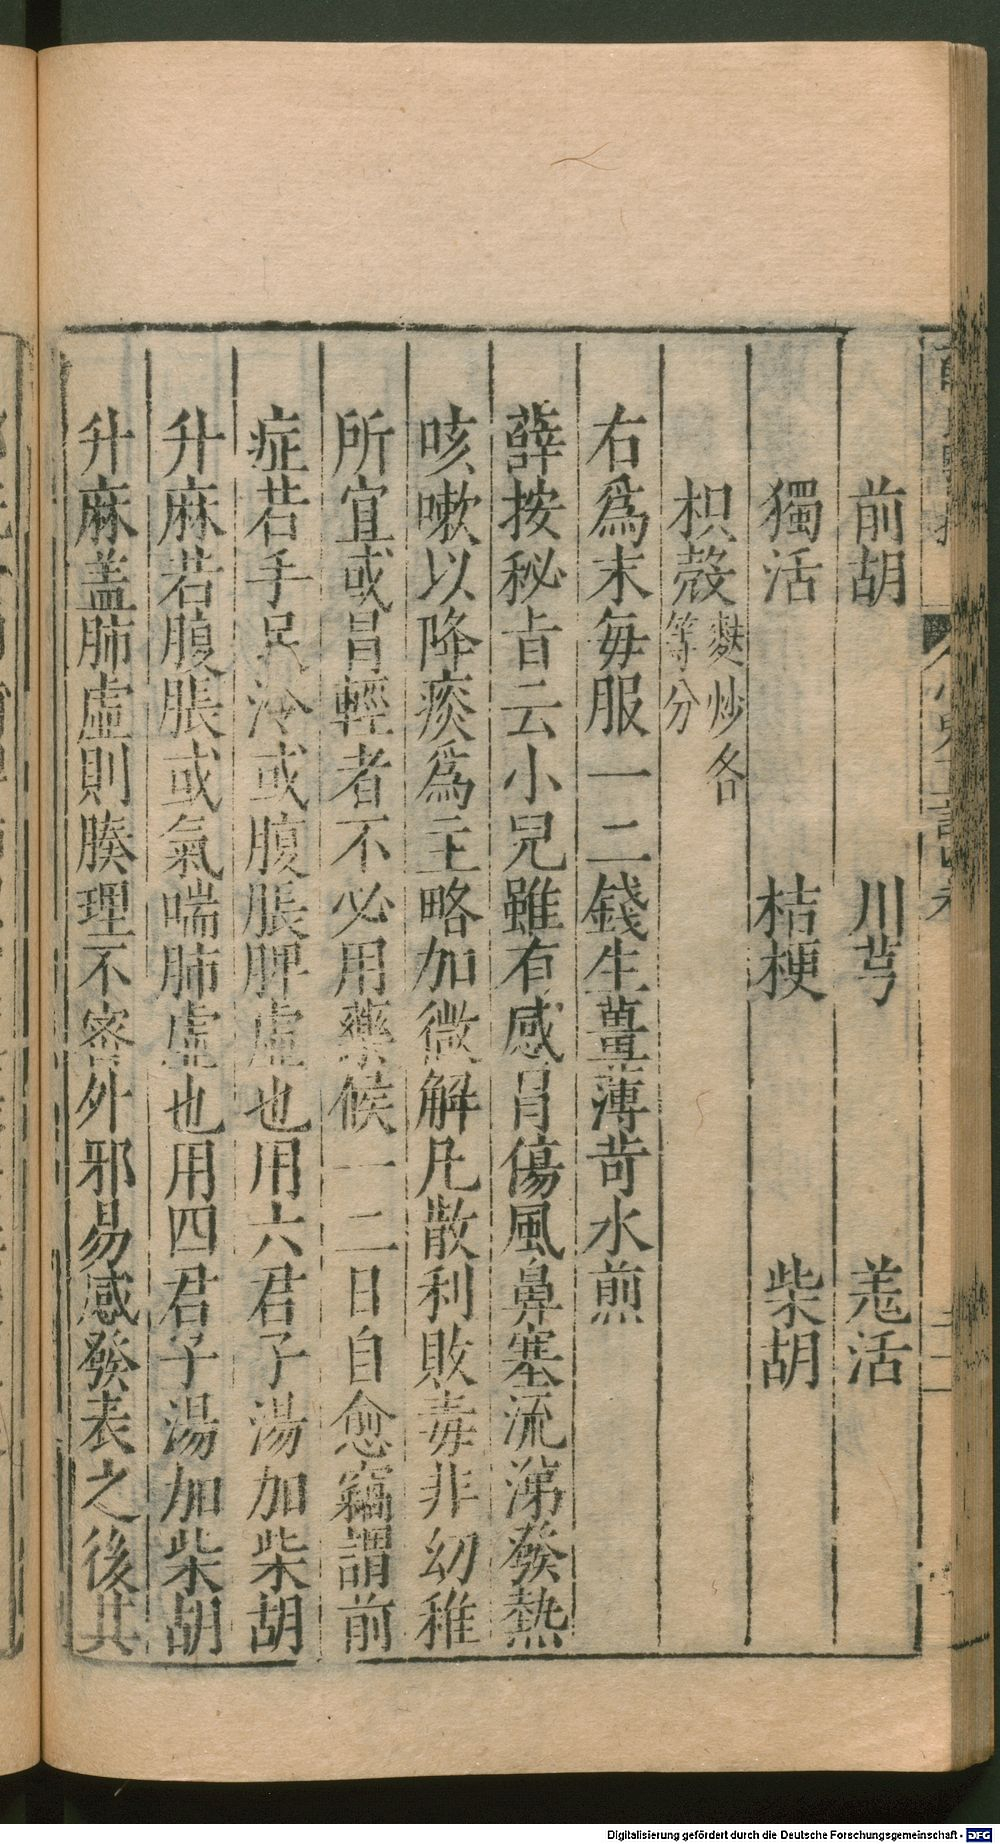 前胡 川芎 羗活
獨活 桔梗 柴胡
枳殼麩炒各等分
右爲末每服一二錢生薑薄苛水煎
薛按秘旨云小兒雖有感冒傷風鼻塞流涕發熱
咳嗽以降痰爲主略加微解凡散利敗毒非幼稚
所宜或冒輕者不必用藥候一二日自愈竊謂前
症若手足冷或腹脹脾虛也用六君子湯加柴胡
升麻若腹脹或氣喘肺虛也用四君子湯加柴胡
升麻盖肺虛則腠理不密外邪易感發表之後其
Digitalisierung gefördert durch die Deutsche Forschungsgemeinschaft - DFG